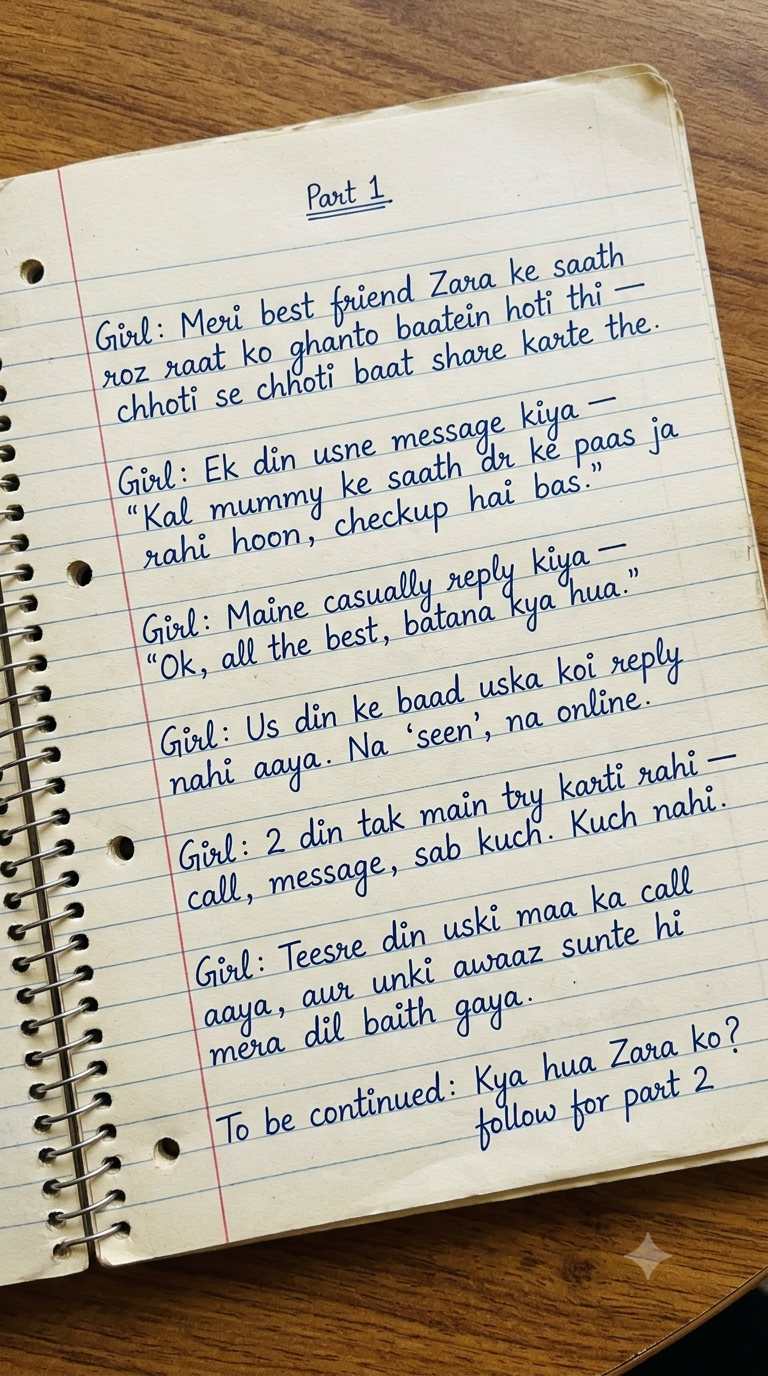 Part 1
Girl: Meri best friend Zara ke saath
roz raat ko ghanto baatein hoti thi —
chhoti se chhoti baat share karte the.
Girl: Ek din usne message kiya —
“Kal mummy ke saath dr ke paas ja
rahi hoon, checkup hai bas.”
Girl: Maine casually reply kiya —
“Ok, all the best, batana kya hua.”
Girl: Us din ke baad uska koi reply
nahi aaya. Na ‘seen’, na online.
Girl: 2 din tak main try karti rahi —
call, message, sab kuch. Kuch nahi.
Girl: Teesre din uski maa ka call
aaya, aur unki awaaz sunte hi
mera dil baith gaya.
To be continued: Kya hua Zara ko?
follow for part 2